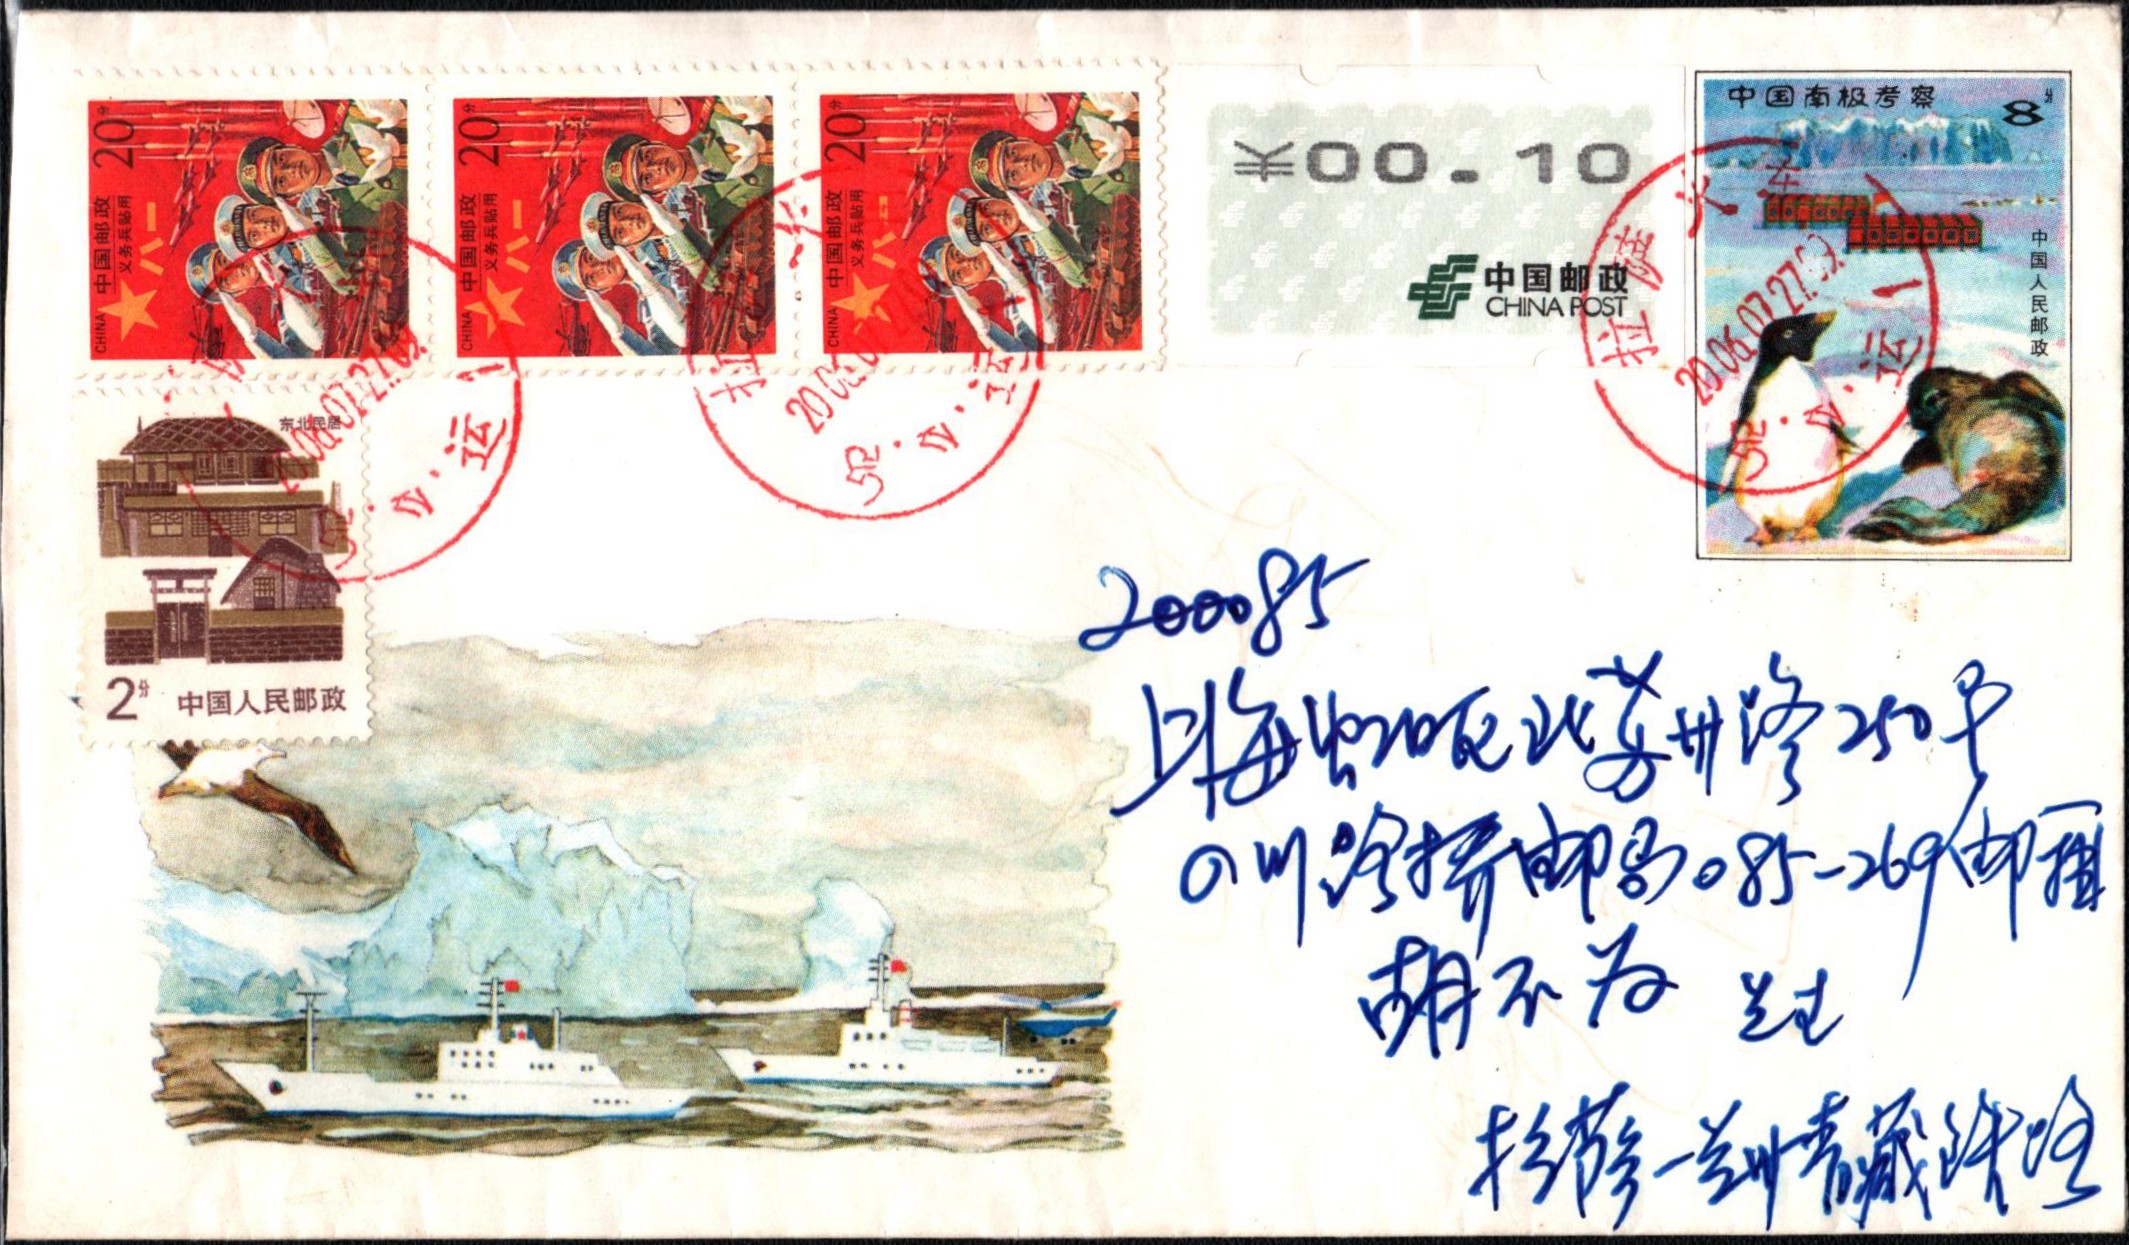 20分
中国邮政
义务兵贴用
CHINA
八一
20分
中国邮政
义务兵贴用
CHINA
八一
20分
中国邮政
义务兵贴用
CHINA
八一
¥00.10
中国邮政
CHINA POST
中国南极考察
8分
中国人民邮政
东北民居
2分 中国人民邮政
拉萨火车站
2006.07.27.09
200085
上海虹口区北苏州路250号
四川路桥邮局085-269邮箱
胡不为 先生
拉萨-兰州青藏铁路